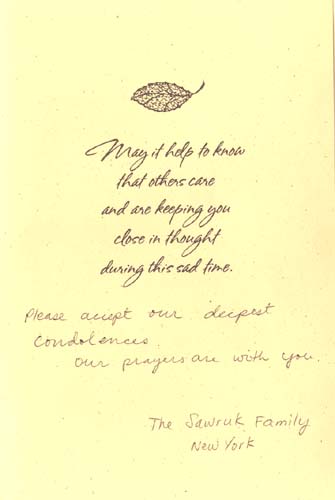 May it help to know
that others care
and are keeping you
close in thought
during this sad time.
Please accept our deepest
Condolences.
Our prayers are with you.
The Sawruk Family
New York